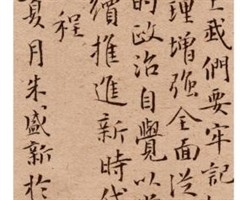 上我們要牢記
理增強全面從
的政治自覺以
續推進新時代
程
夏月朱盛新於